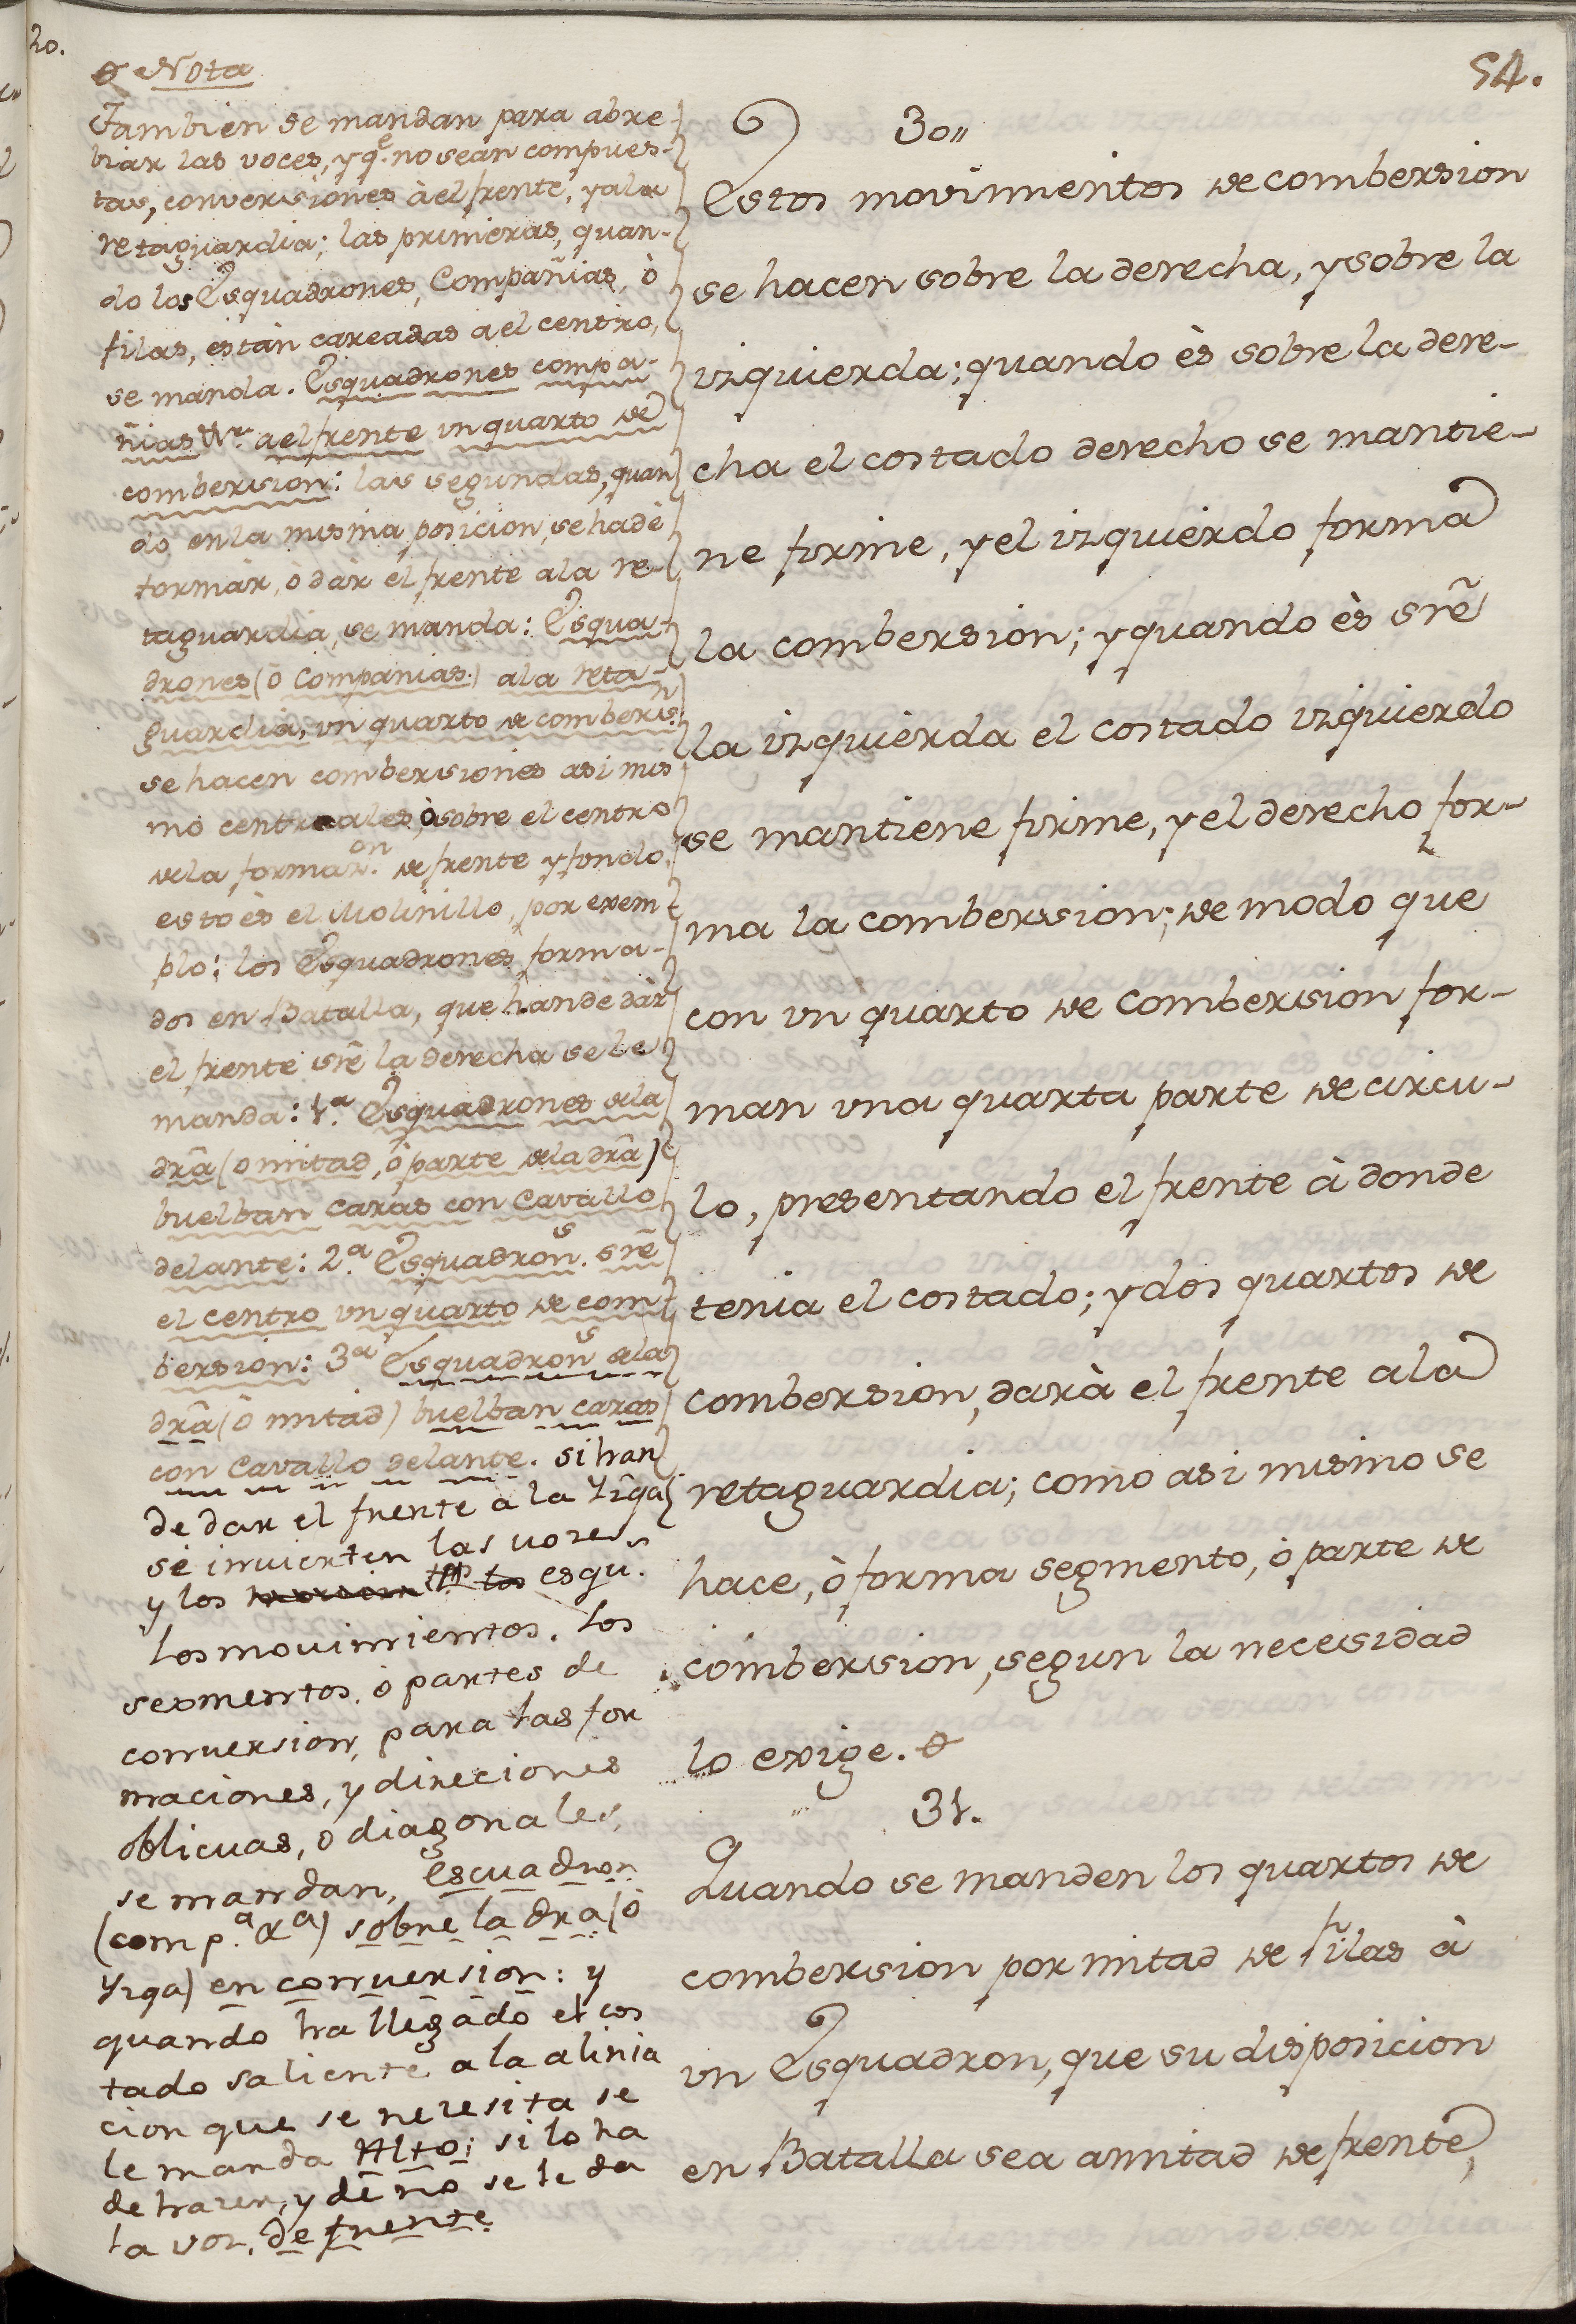 20.
54.
Nota
Tambien se mandan para abre-
biar las voces, y q.e no sean compues-
tas, conversiònes à el frente, y ala
retaguardia; las primeras, quan-
do los Esquadrones, Compañias, ò
filas, estàn careadas a el centro,
se manda. Esquadrones compa-
ñias &.a a el frente un quarto de
combersion: las segundas, quan
do en la misma posicion, se ha dè
formàr, ò dàr el frente a la re-
taguardia, se manda: Esqua-
drones (ò Compañias) a la reta-
guardia, un quarto de combers.n
se hacen combersiones asi mis
mo centrales, ò sobre el centro
de la formaz.on de frente y fondo,
esto ès el Molinillo, por exem
plo: los Esquadrones forma-
dos en Batalla, que han dè dàr
el frente srẽ la derecha se le
manda: 1.a Esquadrones de la
drã (o mitad, ò parte de la drã)
buelban caras con cavallo
delante: 2.a Esquadron.s srẽ
el centro un quarto de com
bersion: 3.a Esquadron.s de la
drã (ò mitad) buelban caras
con Cavallo delante. si han
de dar el frente a la Yzqa
se invierten las vozes
y los esqu.
los movimientos. Los
sexmentos, o partes de
conversion, para las for
maciones, y direciones
oblicuas, o diagonales,
se mandan, escuadron
(comp.a &a) sobre la dra (ò
Yzqa) en conversion: y
quando ha llegado el cos
tado saliente a la alinia
cion que se nezesita se
le manda Alto; si lo ha
de hazer, y de no se le da
la voz, de frente
30"
Estos movimientos de combersion
se hacen sobre la derecha, y sobre la
izquierda; quando ès sobre la dere-
cha el costado derecho se mantie-
ne firme, y el izquierdo forma
la combersion; y quando ès srẽ
la izquierda el costado izquierdo
se mantiene firme, y el derecho for-
ma la combersion; de modo que
con un quarto de combersion for-
man una quarta parte de circu-
lo, presentando el frente à donde
tenia el costado; y dos quartos de
combersion, darà el frente a la
retaguardia; como asi mismo se
hace, ò forma segmento, ò parte de
combersion, segun la necesidad
lo exige.
31.
Quando se manden los quartos de
combersion por mitad de filas à
un Esquadron, que su disposicion
en Batalla sea a mitad de frente,